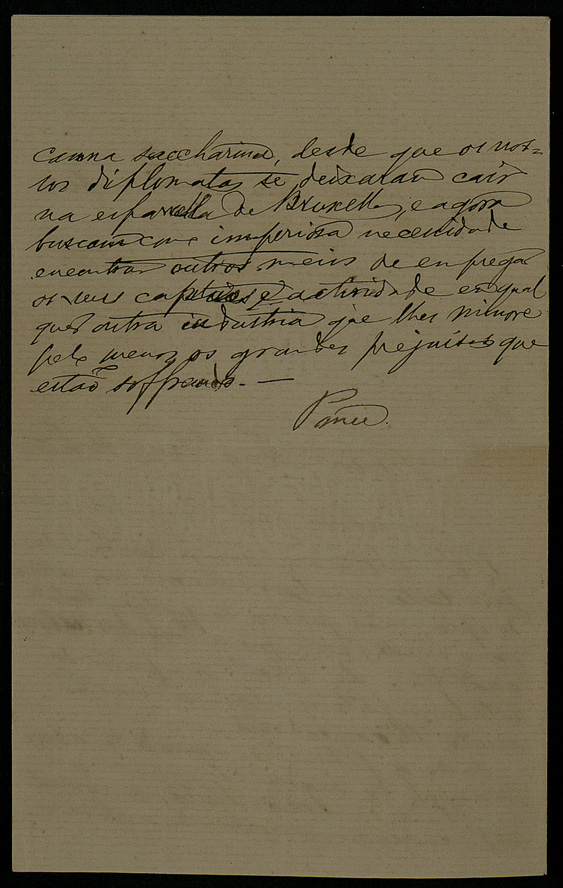 canna saccharina, desde que os nos=
sos diplomatas se deixaram cair
na esparrella de Bruxellas, e agora
buscam com imperiosa necessidade
encontrar outros meios de empregar
os seus capitaes e actividade em qual
quer outra industria que lhes minore
pelo menos os grandes prejuisos que
estão soffrendo. —